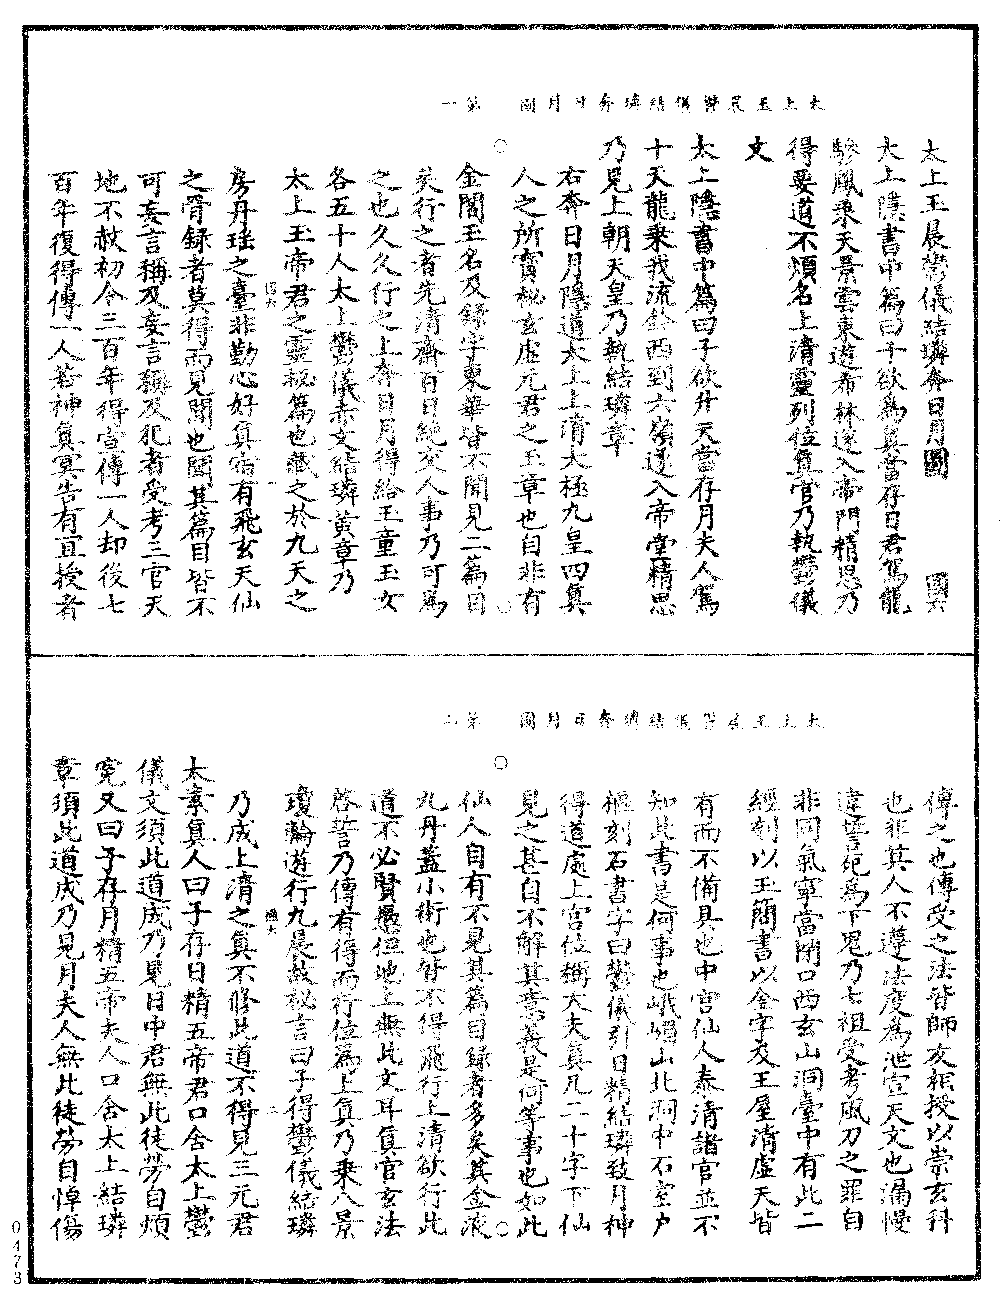 太上玉晨鬱儀結璘奔日月圖　第一
太上玉晨鬱儀結璘奔日月圖　國六
太上隱書中篇曰子欲爲真當存日君駕龍
驂鳳乘天景雲東遊希林遂入帝門精思乃
得要道不煩名上清靈列位真官乃執鬱儀
文
太上隱書中篇曰子欲升天當存月夫人駕
十天龍乘我流鈴西到六嶺遂入帝堂精思
乃見上朝天皇乃執結璘章
右奔日月隱道太上上清太極九皇四真
人之所寶祕玄虛元君之玉章也自非有
金閣玉名及録字東華皆不聞見二篇目
矣行之者先清齋百日絶交人事乃可爲
之也久久行之上奔日月得給玉童玉女
各五十人太上鬱儀赤文結璘黄章乃
太上玉帝君之靈祕篇也藏之於九天之
房丹瑶之臺非勤心好真宿有飛玄天仙
之骨録者莫得而見聞也聞其篇目皆不
可妄言稱及妄言稱及犯者受考三官天
地不赦初令三百年得宣傳一人却後七
百年復得傳一人若神真冥告有宜授者
太上玉晨鬱儀結璘奔日月圖　第二
傳之也傳受之法皆師友相授以崇玄科
也非其人不遵法度爲泄宣天文也漏慢
違誓死爲下鬼乃七祖受考風刀之罪自
非同氣寧當閉口西玄山洞臺中有此二
經刻以玉簡書以金字友王屋清虛天皆
有而不備具也中宫仙人泰清諸官並不
知此書是何事也峨嵋山北洞中石室户
樞刻石書字曰鬱儀引日精結璘致月神
得道處上宫位稱大夫真凡二十字下仙
見之甚自不解其意義是何等事也如此
仙人自有不見其篇目録者多矣其金液
九丹蓋小術也皆不得飛行上清欲行此
道不必賢愚但地上無此文耳真官玄法
啓誓乃傳有得而行位爲上真乃乘八景
瓊輪遊行九晨故祕言曰子得鬱儀結璘
乃成上清之真不修此道不得見三元君
太素真人曰子存日精五帝君口含太上鬱
儀文須此道成乃見日中君無此徒勞自煩
寃又曰子存月精五帝夫人口含太上結璘
章須此道成乃見月夫人無此徒勞自悼傷
0473